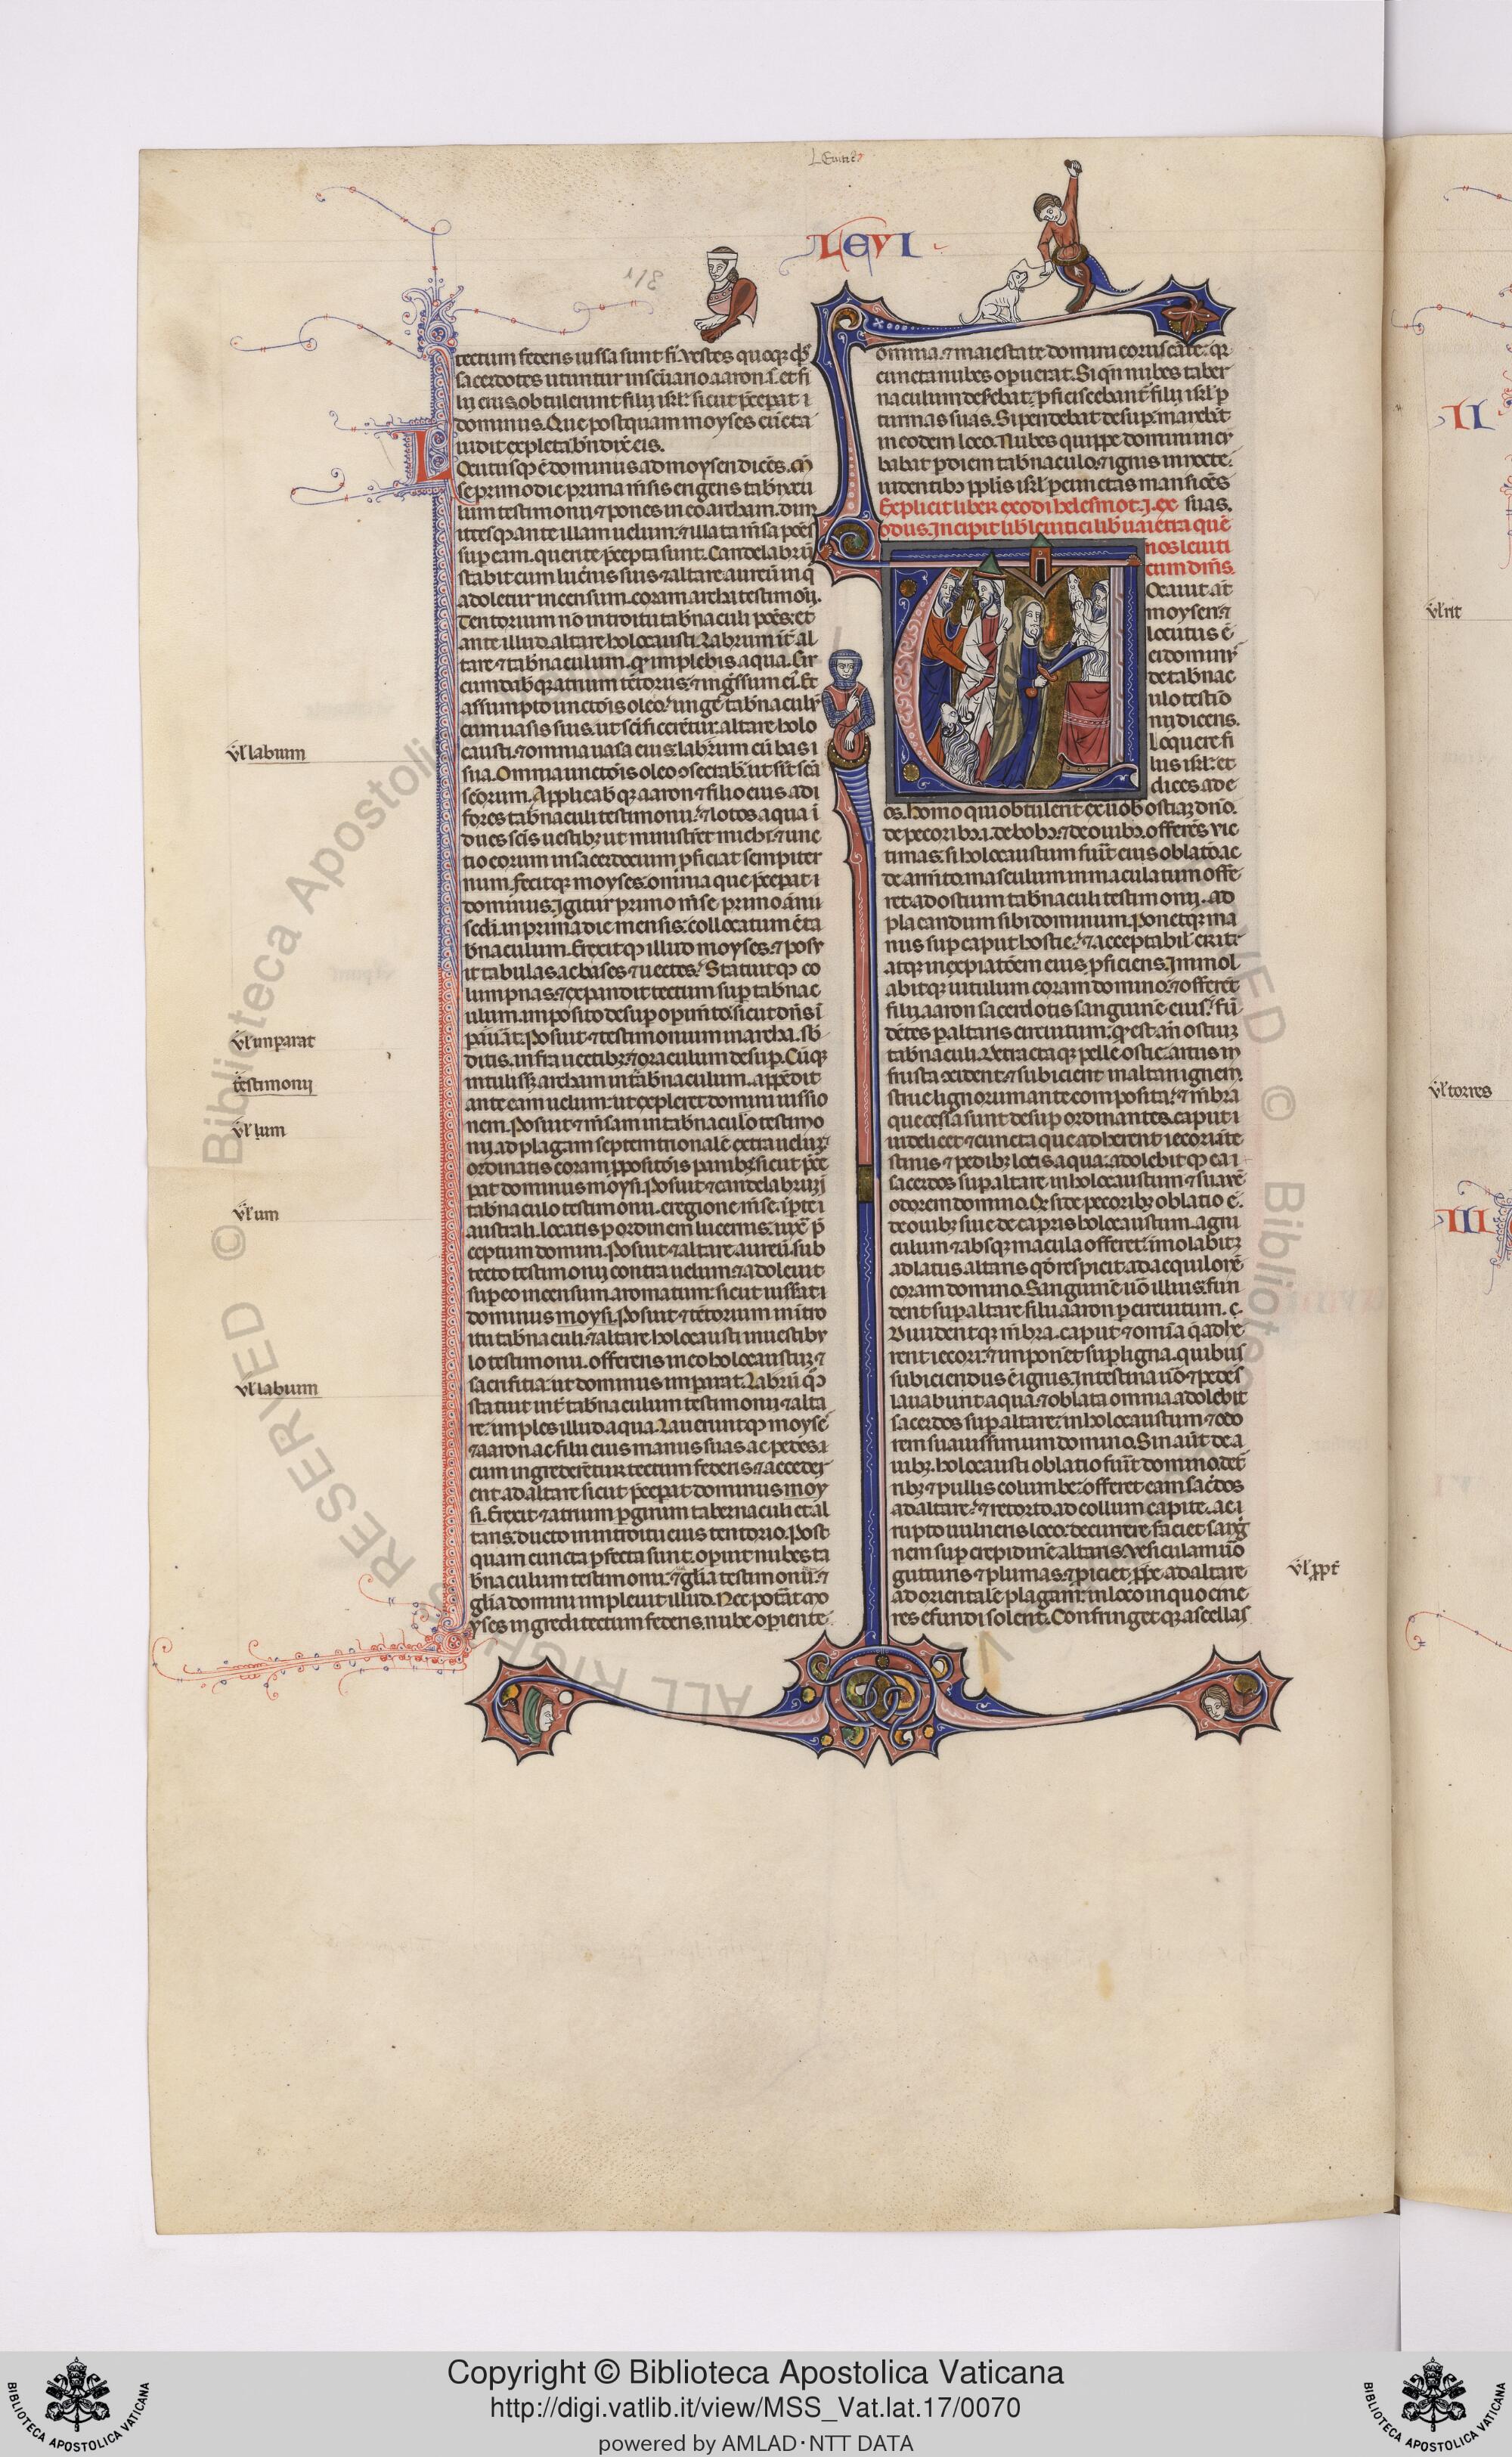 Leuitic9
LEVI
tectum federis iussa sunt fi. vestes quoqꝫ qͥbꝰ
sacerdotes utuntur in scūariō aaron .s. et fi
lij eius. obtulerunt filij isrl̄. sicut p̄cepat
dominus. Que postquam moyses cūcta
uidit cōpleta. bn̄dix̄ eis.
Locutusqꝫ ē dominus ad moysen dicēs. mē
se primo die prima mēsis eriges tabn̄cu
lum testimonij ⁊ pones in eo archam. dim
ittesqꝫ ante illam uelum. ⁊ illata mēsa pōes
suꝑ eam. que rite p̄cepta sunt. Candelabrū
stabit cum lucernis suis ⁊ altare aureū in qͦ
adoletur incensum. coram archa testimonij.
Tentorium in introitu tabn̄aculi pōes. et
ante illud altare holocausti. Labrum int̄ al
tare ⁊ tabn̄aculum. qd̄ implebis aqua. Cir
cumdabisqꝫ atrium tētorijs. ⁊ ingssum eiꝰ. Et
assumpto unctōis oleo. unges tabn̄aculū
cum uasis suis. ut scīficentur. altare holo
causti. ⁊ omnia uasa eius. labrum cū basi
sua. Omnia unctōis oleo ꝯsecrabis ut sint scā
scōrum. Applicabisqꝫ aaron ⁊ filios eius ad
fores tabn̄aculi testimonij. ⁊ lotos aqua i
dues scīs uestibꝫ ut ministrēt michi. ⁊ unc
tio eorum in sacerdocium ꝓficiat sempiter
num. fecitqꝫ moyses omnia que p̄cepat
dominus. Igitur primo mēse primo anni
scdi. in prima die mensis. collocatum ē ta
bn̄aculum. Erexitqꝫ illud moyses. ⁊ posu
it tabulas ac bases ⁊ uectes. Statuitqꝫ co
lumpnas. ⁊ expandit tectum suꝑ tabn̄ac
ulum. imposito desuꝑ opim̄to. sicut dn̄s i
pauat̄. Posuit ⁊ testimonium in archa. sb̄
ditis. infra uectibꝫ. ⁊ oraculum desuꝑ. Cūqꝫ
intulissꝫ archam in tabn̄aculum. appēdit
ante eam uelum. ut cōpleret domini iussio
nem. Posuit ⁊ mēsam in tabn̄aculo testimo
nij. ad plagam septemtrionalē extra uelum.
ordinatis coram ꝓpositōis panibꝫ. sicut p̄ce
pat dominus moysi. Posuit ⁊ candelabrum i
tabn̄aculo testimonij. e regione mēse. i parte
australi. locatis ꝑ ordinem lucernis. iuxͣ p̄
ceptum domini. Posuit ⁊ altare aureū. sub
tecto testimonij contra uelum. ⁊ adoleuit
suꝑ eo incensum aromatum. sicut iusserat
dominus moysi. Posuit ⁊ tētorium in itro
itu tabn̄aculi. ⁊ altare holocausti in uestibu
lo testimonij. offerens in eo holocaustum ⁊
sacrificia. ut dominus imparat. Labrū qͦqꝫ
statuit int̄ tabn̄aculum testimonij ⁊ alta
re. imples illud aqua. Lauerūtqꝫ moyses
⁊ aaron. ac filij eius manus suas ac pedes.
cum ingrederētur tectum federis. ⁊ acceder
ent ad altare sicut p̄cepat dominus moy
si. Erexit ⁊ atrium ꝑ girum tabernaculi et al
taris. ducto in introitu eius tentorio. Post
quam cuncta ꝑfecta sunt. opuit nubes ta
bn̄aculum testimonij. ⁊ gl̄ia testimonij. ⁊
gl̄ia domini impleuit illud. Nec potat̄ mo
yses ingredi tectum federis. nube opiente
omnia. ⁊ maiestate domini coruscāte. qꝛ
cuncta nubes opuerat. Si qn̄ nubes taber
naculum deserebat. ꝓficiscebant̄ filij isrl̄ ꝑ
turmas suas. Si pendebat desuꝑ. manebāt
in eodem loco. Nubes quippe domini incu
babat ꝑ diem tabn̄aculo. ⁊ ignis in nocte.
uidentibꝫ pp̄lis isrl̄ ꝑ cunctas mansiōes
suas.
Explicit liber exodi helesmot. I. ex
odus. Incipit lib̄ leuitici lib̄ uaiecra quē
nos leuiti
cum dicimꝰ.
Vocauit aūt
moysen. ⁊
locutus ē
ei dominꝰ
de tabn̄ac
ulo testio
nij dicens.
loquere fi
liis isrl̄. et
dices ad e
os. homo qui obtulerit ex uob̄ ostiam dn̄o.
de pecoribꝫ .i. de bobꝫ. ⁊ de ouibꝫ. offerēs vic
timas. si holocaustum fuit̄ eius oblatō ac
de armēto. masculum immaculatum offe
ret. ad ostium tabn̄aculi testimonij. ad
placandum sibi dominum. Ponetqꝫ ma
nus suꝑ caput hostie. ⁊ acceptabil̄ erit
atqꝫ in expiatōem eius ꝓficiens. Immol
abitqꝫ uitulum coram domino. ⁊ offerēt
filij aaron sacerdotis sanguinē eius. fū
dētes ꝑ altaris circuitum. qd̄ est an̄ ostium
tabn̄aculi. Detractaqꝫ pelle ostie. artus in
frusta cōcident. ⁊ subicient in altari ignem.
strue lignorum ante composita. ⁊ mēbra
que cēsa sunt desuꝑ ordinantes. caput
uidelicet ⁊ cuncta que adherent iecori. ⁊ ite
stinis ⁊ pedibꝫ lotis aqua. adolebitqꝫ ea
sacerdos suꝑ altare. in holocaustum ⁊ suauē
odorem domino. Qd̄ si de pecoribꝫ oblatio ē.
de ouibꝫ siue de capris holocaustum. agni
culum ⁊ absqꝫ macula offeret. imolabitqꝫ
ad latus altaris qd̄ respicit ad acquilonē
coram domino. Sanguinē uō illius fun
dent suꝑ altare. filij aaron ꝑ circuitum.
Diuidentqꝫ mēbra. caput ⁊ omīa q̄ adhe
rent iecori. ⁊ imponēt suꝑ ligna. quibus
subiciendus ē ignis. Intestina uō ⁊ pedes
lauabunt aqua. ⁊ oblata omnia adolebit
sacerdos suꝑ altare. in holocaustum ⁊ odo
rem suauissimum domino. Sin aūt de a
uibꝫ. holocausti oblatio fuit̄ domino. de tur
ribꝫ ⁊ pullis columbe. offeret eam sacerdos
ad altare. ⁊ retorto ad collum capite. ac
rupto uulneris loco. decurrere faciet sangͥ
nem suꝑ crepidinē altaris. Vesiculam uō
gutturis ⁊ plumas. ꝓiciet ꝓpe ad altare
ad orientalē plagam. in loco in quo cine
res effundi solent. Confringetqꝫ ascellas
vl̄ labium
vl̄ imparat
testimonij
vl̄ lum
vl̄ um
vl̄ labium
vl̄ ppt̄
II
vl̄ rit
vl̄ torres
III
© Biblioteca Apostolica Vaticana
ALL RIGHTS RESERVED
Copyright © Biblioteca Apostolica Vaticana
http://digi.vatlib.it/view/MSS_Vat.lat.17/0070
powered by AMLAD·NTT DATA
BIBLIOTECA APOSTOLICA VATICANA
BIBLIOTECA APOSTOLICA VATICANA